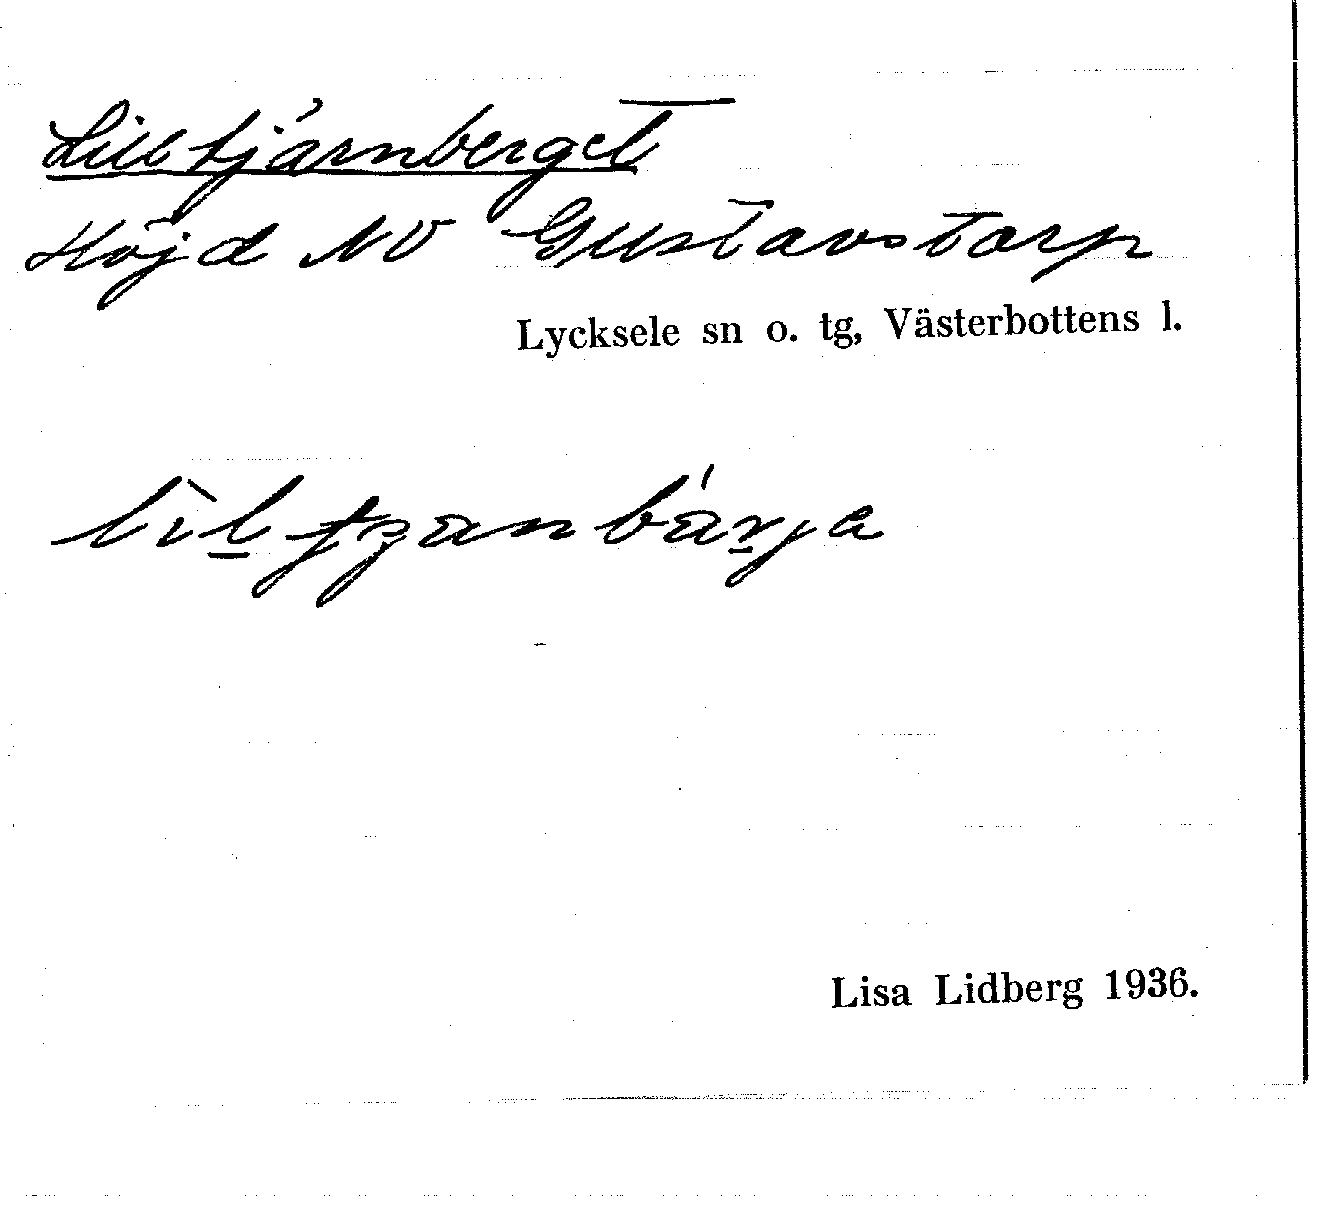 Lilltjärnberget
Höjd NV Gustavstorp
Lycksele sn o. tg, Västerbottens l.
Lisa Lidberg 1936.